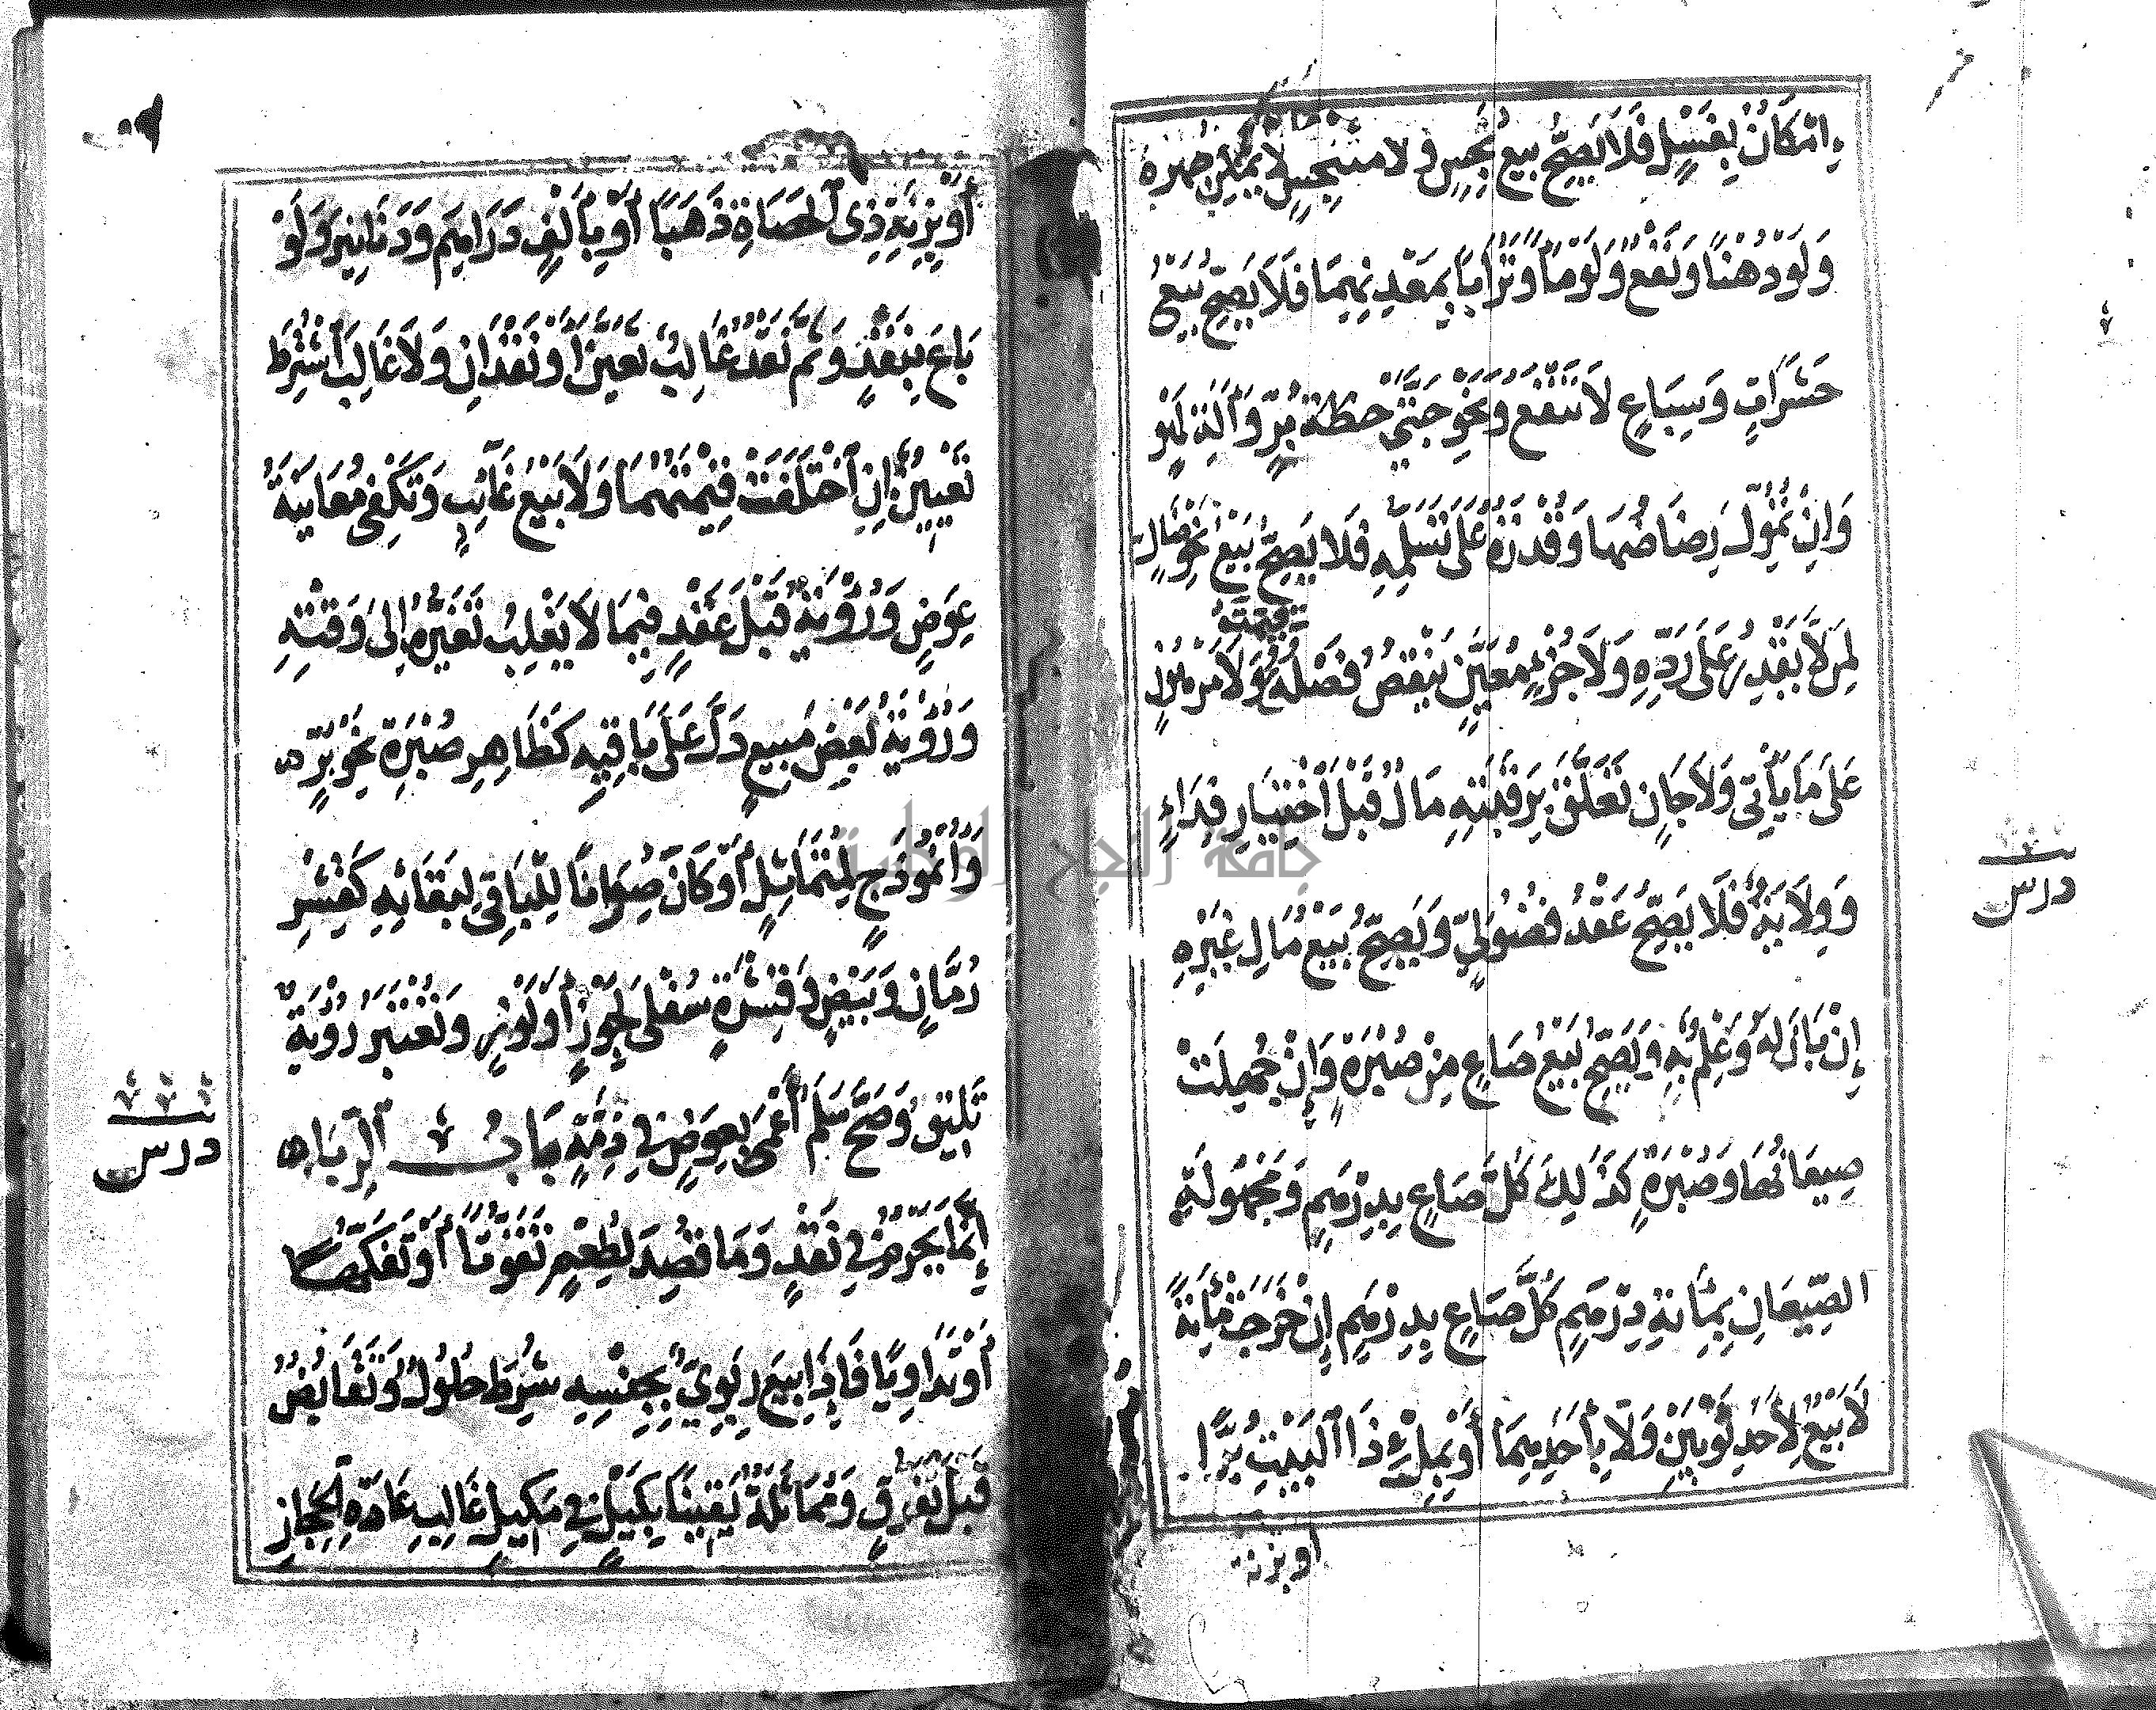 إِمْكَانُ بِغَسْلٍ فَلَا يَصِحُّ بَيْعُ نَجِسٍ وَلَا مُتَنَجِّسٍ لَا يُمْكِنُ طُهْرُهُ
وَلَوْ دُهْنًا وَنَفْعٌ وَلَوْ مَاءً وَتُرَابًا بِمَعْدِنِهِمَا فَلَا يَصِحُّ بَيْعُ
حَشَرَاتٍ وَسِبَاعٍ لَا تَنْفَعُ وَنَحْوِ حَبَّتَيْ حِنْطَةٍ بُرٍّ وَآلَةِ لَهْوٍ
وَإِنْ تُمُوِّلَ رِضَاضُهَا وَقُدْرَةٌ عَلَى تَسَلُّمِهِ فَلَا يَصِحُّ بَيْعُ نَحْوِ ضَالٍّ
لِمَنْ لَا يَقْدِرُ عَلَى رَدِّهِ وَلَا جُزْءٍ مُعَيَّنٍ يَنْقُصُ فَصْلُهُ قِيمَتَهُ وَلَا مَرْهُونٍ
عَلَى مَا يَأْتِي وَلَا جَانٍ تَعَلَّقَ بِرَقَبَتِهِ مَالٌ قَبْلَ اخْتِيَارِ فِدَاءٍ
وَوِلَايَةٌ فَلَا يَصِحُّ عَقْدُ فُضُولِيٍّ وَيَصِحُّ بَيْعُ مَالِ غَيْرِهِ
إِنْ بَانَ لَهُ وَعِلْمٌ بِهِ وَيَصِحُّ بَيْعُ صَاعٍ مِنْ صُبْرَةٍ وَإِنْ جُهِلَتْ
صِيعَانُهَا وَصُبْرَةٍ كَذَلِكَ كُلَّ صَاعٍ بِدِرْهَمٍ وَمَجْهُولَةِ
الصِّيعَانِ بِمِائَةِ دِرْهَمٍ كُلَّ صَاعٍ بِدِرْهَمٍ إِنْ خَرَجَتْ مِائَةً
لَا بَيْعُ لِأَحَدِ ثَوْبَيْنِ وَلَا بِأَحَدِهِمَا أَوْ بِمِلْءِ ذَا الْبَيْتِ بُرًّا
أو بزنة
درس
أَوْ بِزِنَةِ ذِي الْحَصَاةِ ذَهَبًا أَوْ بِأَلْفٍ دَرَاهِمَ وَدَنَانِيرَ وَلَوْ
بَاعَ بِنَقْدٍ وَثَمَّ نَقْدٌ غَالِبٌ تَعَيَّنَ أَوْ نَقْدَانِ وَلَا غَالِبَ اشْتُرِطَ
تَعْيِينٌ إِنِ اخْتَلَفَتْ قِيمَتُهُمَا وَلَا بَيْعُ غَائِبٍ وَتَكْفِي مُعَايَنَةُ
عِوَضٍ وَرُؤْيَةٌ قَبْلَ عَقْدٍ فِيمَا لَا يَغْلِبُ تَغَيُّرُهُ إِلَى وَقْتِهِ
وَرُؤْيَةُ بَعْضِ مَبِيعٍ دَلَّ عَلَى بَاقِيهِ كَظَاهِرِ صُبْرَةِ نَحْوِ بُرٍّ
وَأُنْمُوذَجٍ لِمُتَمَاثِلٍ أَوْ كَانَ صِوَانًا لِلْبَاقِي لِبَقَائِهِ كَقِشْرِ
رُمَّانٍ وَبَيْضٍ وَقِشْرَةٍ سُفْلَى لِجَوْزٍ أَوْ لَوْزٍ وَتُعْتَبَرُ رُؤْيَةٌ
تَلِيقُ وَصَحَّ سَلَمُ أَعْمَى بِعِوَضٍ فِي ذِمَّةٍ بَابُ الرِّبَا
إِنَّمَا يَحْرُمُ فِي نَقْدٍ وَمَا قُصِدَ لِطُعْمٍ تَقَوُّتًا أَوْ تَفَكُّهًا
أَوْ تَدَاوِيًا فَإِذَا بِيعَ رِبَوِيٌّ بِجِنْسِهِ شُرِطَ حُلُولٌ وَتَقَابُضٌ
قَبْلَ تَفَرُّقٍ وَمُمَاثَلَةٌ يَقِينًا بِكَيْلٍ فِي مَكِيلِ غَالِبِ عَادَةِ الْحِجَازِ
درس
جامعة النجاح الوطنية